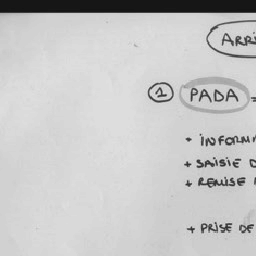 ① PADA =
• INFORM
+ SAISIE
+ REMISE
+ PRISE DE